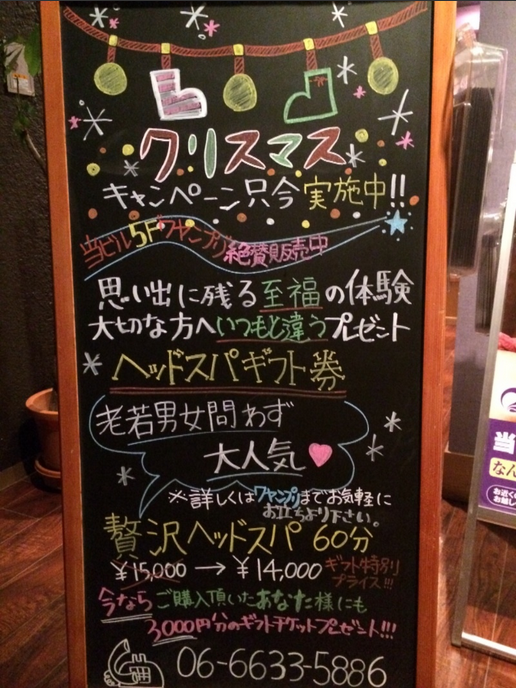 クリスマス
キャンペーン只今実施中!!
当ビル5Fワヤンプリ絶賛販売中
思い出に残る至福の体験
大切な方へいつもと違うプレゼント
ヘッドスパギフト券
老若男女問わず
大人気
※詳しくはワヤンプリまでお気軽に
お立ちより下さい。
贅沢ヘッドスパ 60分
¥15,000→¥14,000 ギフト特別
プライス!!!
今ならご購入頂いたあなた様にも
3,000円分のギフトチケットプレゼント!!!
06-6633-5886
当
なん
お近く
お越し